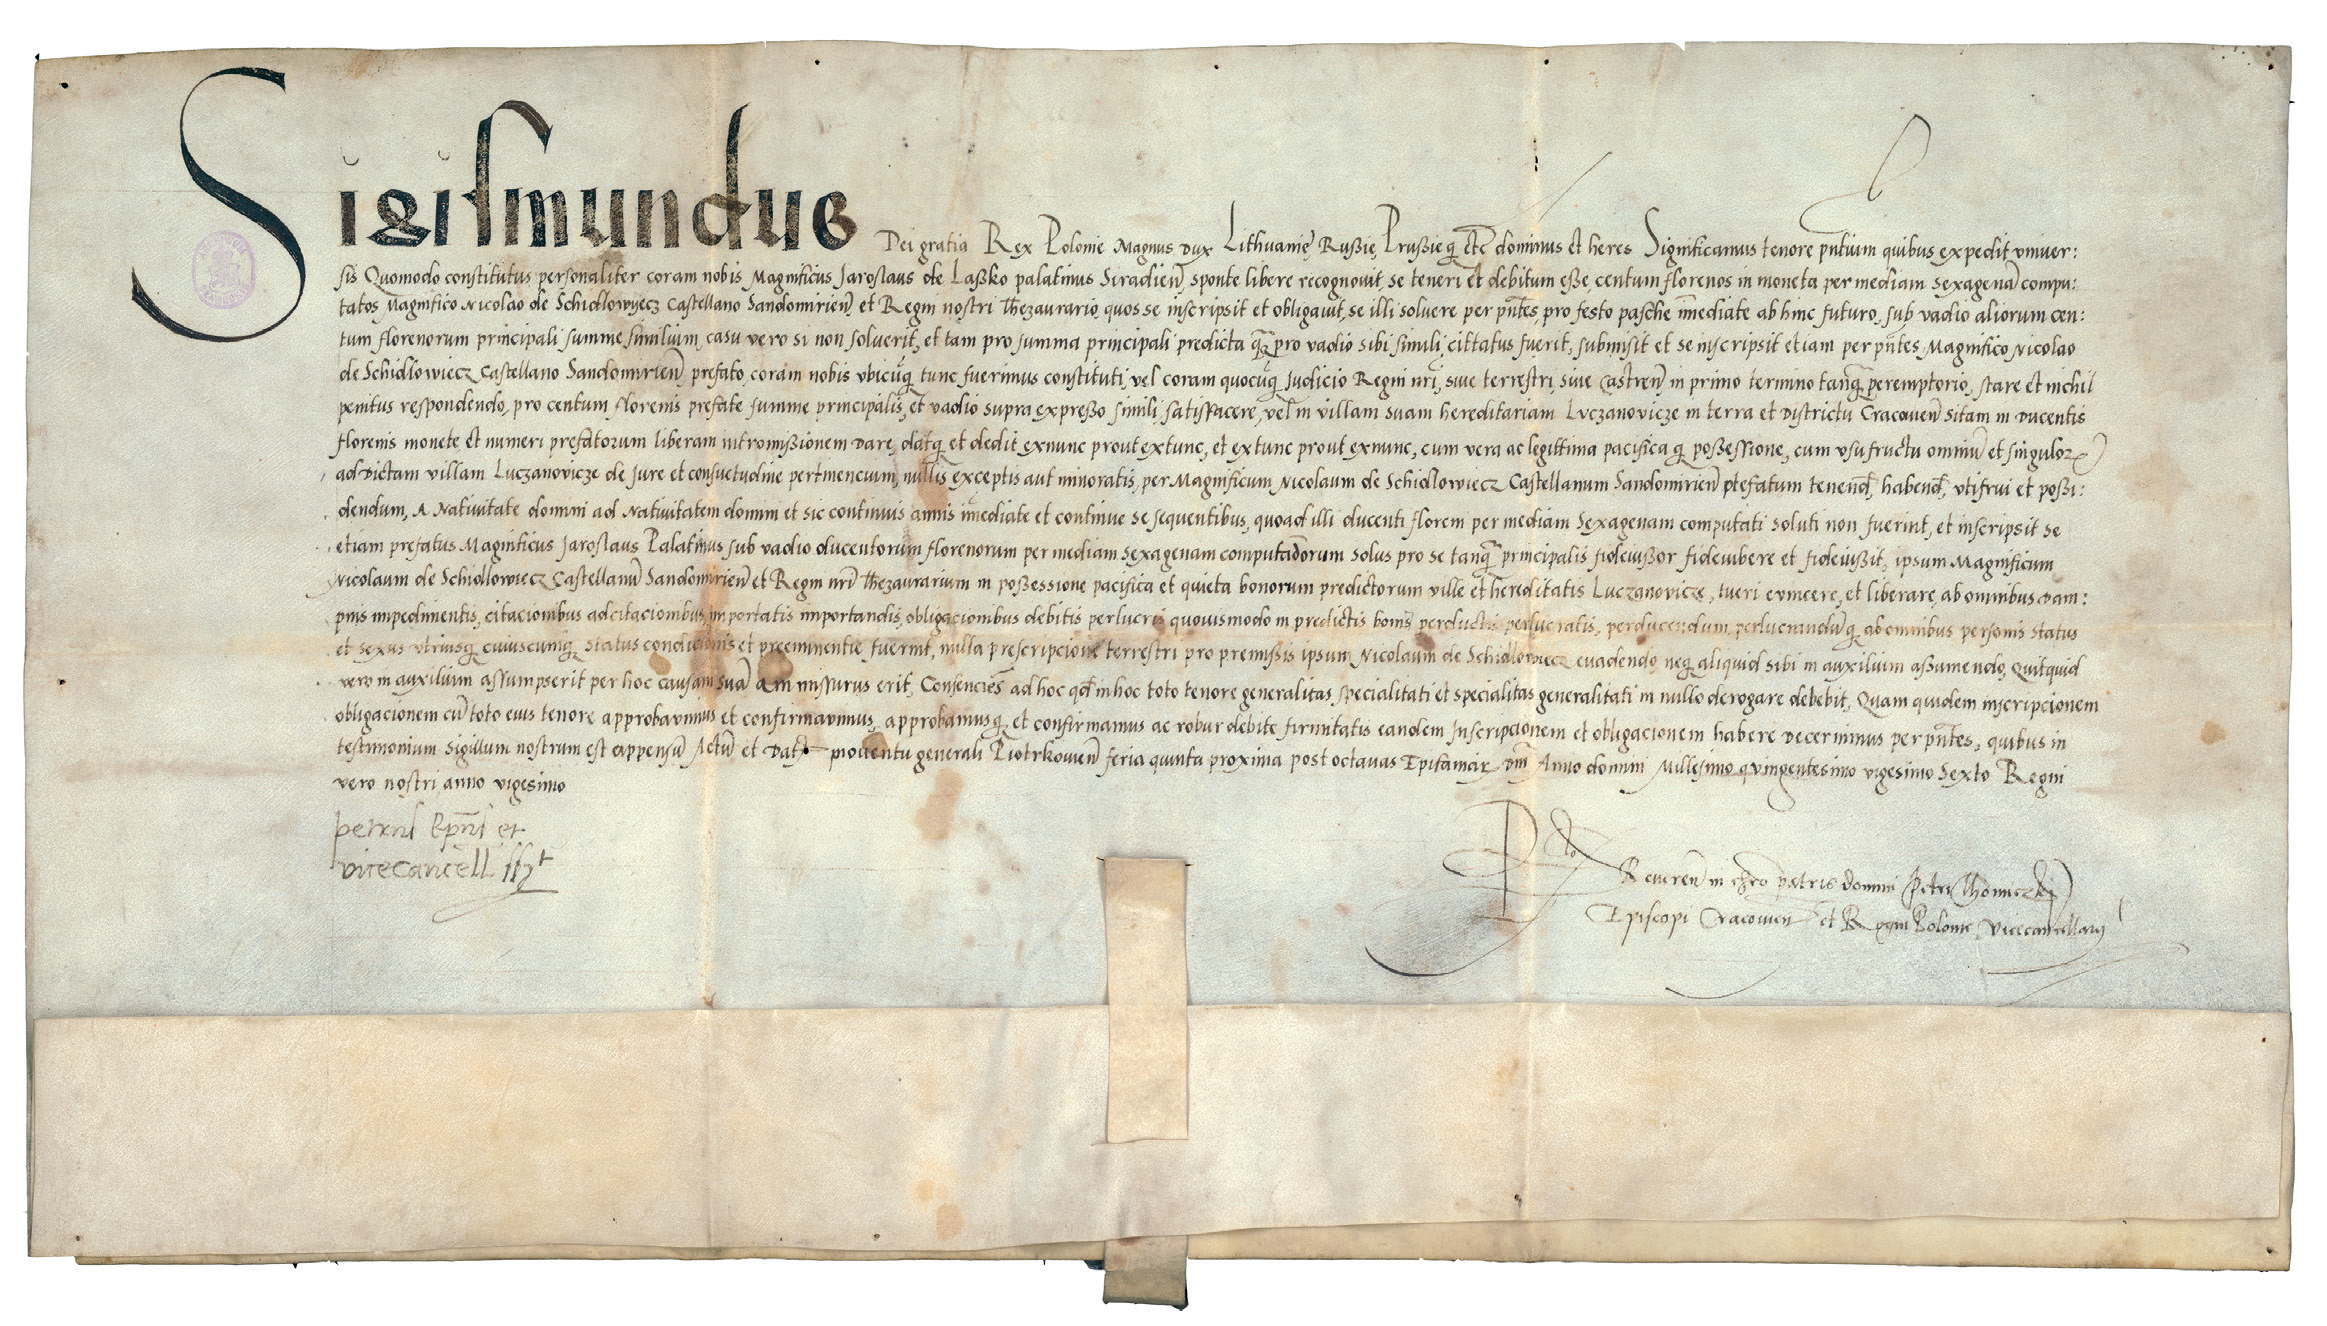 Sigismundus Dei gratia Rex Polonie Magnus Dux Lithuanię Russię Prussieq̨ etc̄ dominus et heres Significamus tenore pn̄tium quibus expedit vniuer:
sis Quomodo constitutus personaliter coram nobis Magnificus Jaroslaus de Lassko palatinus Siradien̄ sponte libere recognouit, se teneri et debitum esse, centum florenos in moneta per mediam sexagenā compu:
tatos Magnifico Nicolao de Schidlowyecz Castellano Sandomirien̄ et Regni nostri Thezaurario, quos se inscripsit et obligauit, se illi soluere per pn̄tes, pro festo pasche īmediate ab hinc futuro, sub vadio aliorum cen:
tum florenorum principali summe similium, casu vero si non soluerit, et tam pro summa principali predicta q̄ꝫ pro vadio sibi simili, cittatus fuerit, submisit et se inscripsit etiam per pn̄tes Magnifico Nicolao
de Schidlowiecz Castellano Sandomirien̄ prefato, coram nobis vbicūq̨ tunc fuerimus constituti, vel coram quocūq̨ Judicio Regni nrī, siue terrestri, siue Castren̄ in primo termino tanq̄ꝫ peremptorio, stare et nichil
penitus respondendo, pro centum florenis prefate summe principalis, et vadio supra expresso simili, satisfacere, vel in villam suam hereditariam Luczanovicze in terra et Districtu Cracouien̄ sitam in Ducentis
florenis monete et numeri prefatorum liberam intromissionem Dare, datq̨ et dedit exnunc prout extunc, et extunc prout exnunc, cum vera ac legittima pacifica q̨ possessione, cum vsufructu omniū et singuloꝝ
ad Dictam villam Luczanovicze de Jure et consuetudine pertinencium, nullis exceptis aut minoratis, per Magnificum Nicolaum de Schidlowiecz Castellanum Sandomirien̄ prefatum tenend̄, habend̄, vtifrui et possi:
dendum, A Natiuitate domini ad Natiuitatem domini et sic continuis annis īmediate et continue se sequentibus, quoad illi ducenti floreni per mediam Sexagenam computati soluti non fuerint, et inscripsit se
etiam prefatus Magnificus Jaroslaus Palatinus sub vadio ducentorum florenorum per mediam sexagenam computatorum solus pro se tanq̄ꝫ principalis fideiussor fideiubere et fideiussit, ipsum Magnificum
Nicolaum de Schidlowiecz Castellanū Sandomirien̄ et Regni nrī Thezaurarium in possessione pacifica et quieta bonorum predictorum ville et hereditatis Luczanovicze, tueri euincere, et liberare, ab omnibus Dam:
pnis impedimentis, citacionibus adcitacionibus, importatis importandis, obligacionibus debitis perlucris quouismodo in predictis bonis perductis perlucratis, perducendum, perlucrandūq̨ ab omnibus personis status
et sexus vtriusq̨ cuiuscunq̨ status condicionis et preeminentie fuerint, nulla prescripcione terrestri pro premissis ipsum Nicolaum de Schidlowiecz euadendo, neq̨ aliquid sibi in auxilium assumendo, Quitquid
vero in auxilium assumpserit per hoc causam suā amissurus erit, Consenciēs ad hoc qd̄ in hoc toto tenore generalitas specialitati et specialitas generalitati in nullo derogare debebit, Quam quidem inscripcionem
obligacionem cū toto eius tenore approbauimus et confirmauimus, approbamusq̨ et confirmamus ac robur debite firmitatis eandem Inscripcionem et obligacionem habere Decernimus per pn̄tes, quibus in
testimonium sigillum nostrum est appensū Actū et Dat in conuentu generali Piotrkouien̄ feria quinta proxima post octauas Epifaniaꝝ Dnī Anno domini Millesimo quingentesimo vigesimo Sexto Regni
vero nostri anno vigesimo
petrus Ep̄us et
vicecancell sst
Rto Reueren̄ in chr̄o patris domini Petri Thomiczkij
Episcopi Cracouien̄ et Regni Polonie vicecancellarij